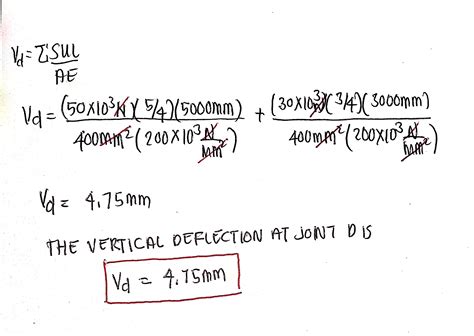 Vd = ΣSUL / AE
Vd = (50×10³N)(5/4)(5000mm) / 400mm²(200×10³ N/mm²) + (30×10³N)(3/4)(3000mm) / 400mm²(200×10³ N/mm²)
Vd = 4.75mm
THE VERTICAL DEFLECTION AT JOINT D IS
Vd = 4.75mm